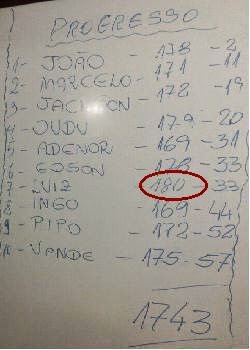 PROGRESSO
1- JOÃO - 178 - 2
2- MARCELO - 171 - 11
3- JACKSON - 172 - 19
4- DUDU - 179 - 20
5- ADENOR - 169 - 31
6- EDSON - 178 - 33
7- LUIZ - 180 - 33
8- INGO - 169 - 44
9- PIPO - 172 - 52
10- VANDE - 175 - 57
1743